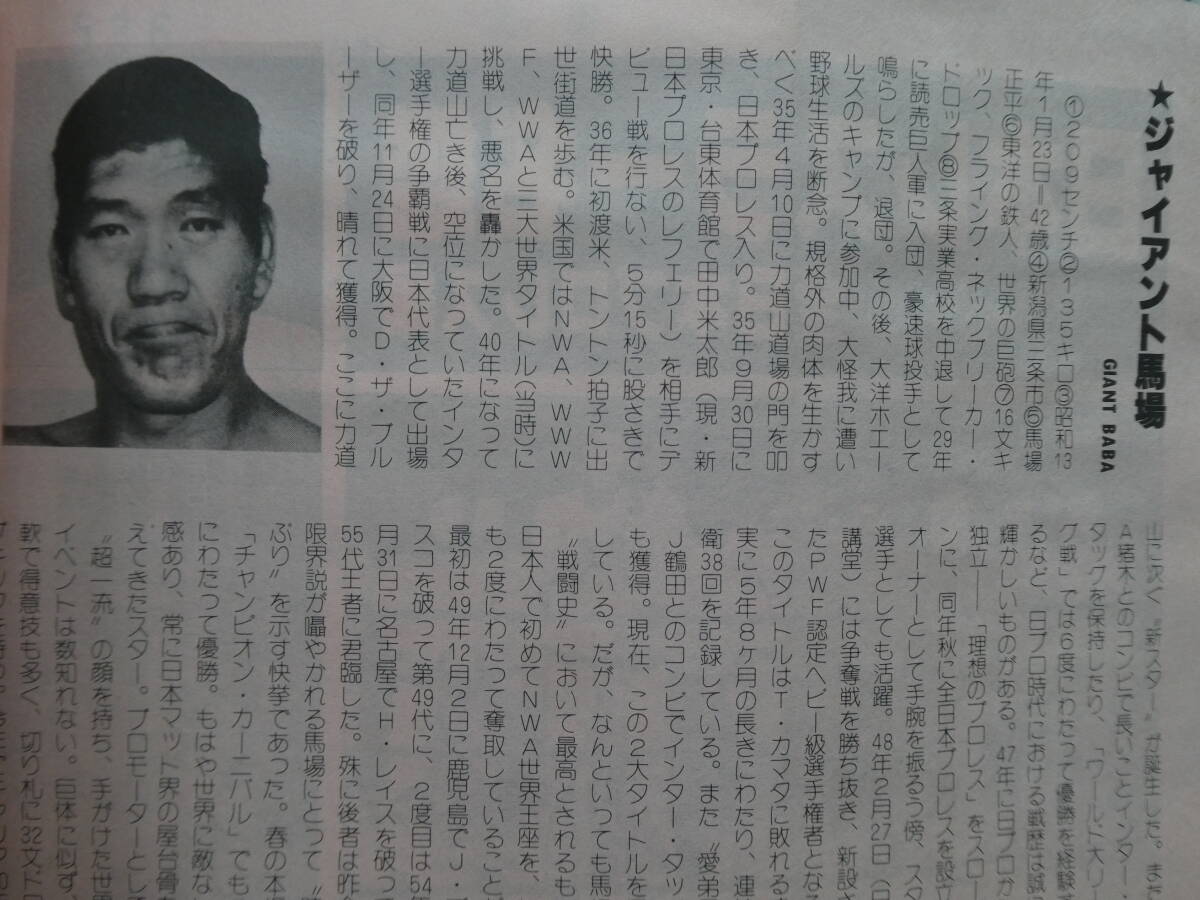 ★ジャイアント馬場
GIANT BABA
①209センチ②135キロ③昭和13
年1月23日＝42歳④新潟県三条市⑤馬場
正平⑥東洋の鉄人、世界の巨砲⑦16文キ
ック、フライング・ネックブリーカー・
ドロップ⑧三条実業高校を中退して29年
に読売巨人軍に入団、豪速球投手として
鳴らしたが、退団。その後、大洋ホエー
ルズのキャンプに参加中、大怪我に遭い
野球生活を断念。規格外の肉体を生かす
べく35年4月10日に力道山道場の門を叩
き、日本プロレス入り。35年9月30日に
東京・台東体育館で田中米太郎（現・新
日本プロレスのレフェリー）を相手にデ
ビュー戦を行ない、5分15秒に股さきで
快勝。36年に初渡米、トントン拍子に出
世街道を歩む。米国ではNWA、WWW
F、WWAと三大世界タイトル（当時）に
挑戦し、悪名を轟かした。40年になって
力道山亡き後、空位になっていたインタ
ー選手権の争覇戦に日本代表として出場
し、同年11月24日に大阪でD・ザ・ブル
ーザーを破り、晴れて獲得。ここに力道
山に次ぐ〝新スター〟が誕生した。また
A猪木とのコンビで長いことインター・
タッグを保持したり、「ワールド大リー
グ戦」では6度にわたって優勝を経験す
るなど、日プロ時代における戦歴は誠に
輝かしいものがある。47年に日プロか
独立──「理想のプロレス」をスロー
ンに、同年秋に全日本プロレスを設立
オーナーとして手腕を振るう傍、スタ
選手としても活躍。48年2月27日（日
講堂）には争奪戦を勝ち抜き、新設さ
たPWF認定ヘビー級選手権者となる
このタイトルはT・カマタに敗れる
実に5年8ヶ月の長きにわたり、連
衛38回を記録している。また〝愛弟
J鶴田とのコンビでインター・タッ
も獲得。現在、この2大タイトルを
している。だが、なんといっても馬
〝戦闘史〟において最高とされるも
日本人で初めてNWA世界王座を、
も2度にわたって奪取していること
最初は49年12月2日に鹿児島でJ・
スコを破って第49代に、2度目は54
月31日に名古屋でH・レイスを破っ
55代王者に君臨した。殊に後者は昨
限界説が囁やかれる馬場にとって〝
ぷり〟を示す快挙であった。春の本
「チャンピオン・カーニバル」でも
にわたって優勝。もはや世界に敵な
感あり、常に日本マット界の屋台骨
えてきたスター。プロモーターとし
〝超一流〟の顔を持ち、手がけた世
イベントは数知れない。巨体に似ず
軟で得意技も多く、切り札に32文ド